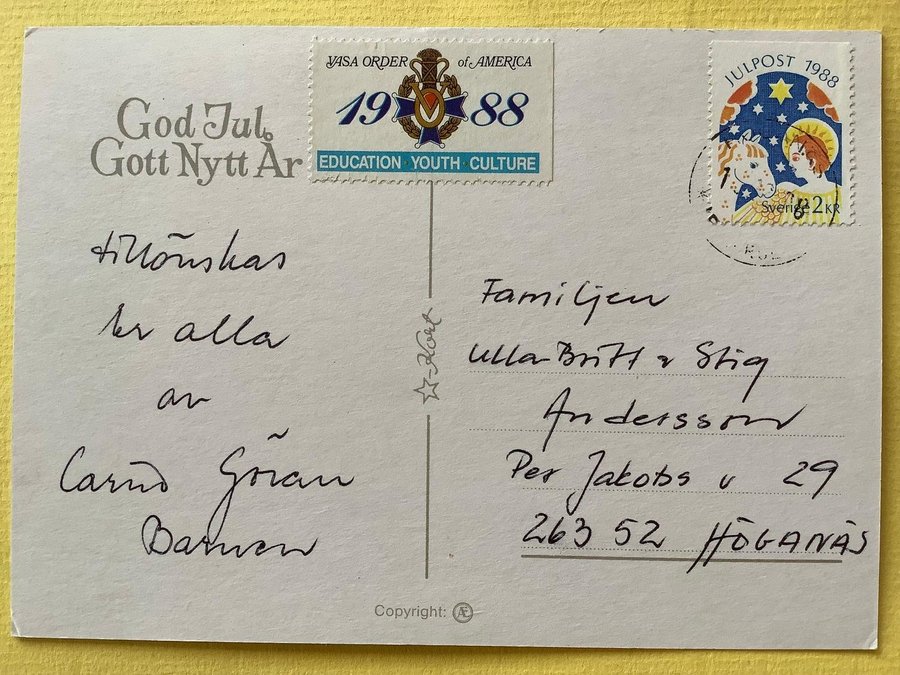 VASA ORDER of AMERICA
1988
EDUCATION · YOUTH · CULTURE
JULPOST 1988
Sverige 2KR
God Jul
Gott Nytt År
tillönskas
Er alla
av
Carin Göran
Barnen
☆-Kort
Familjen
Ulla-Britt & Stig
Andersson
Per Jakobs v 29
263 52 HÖGANÄS
Copyright: Æ